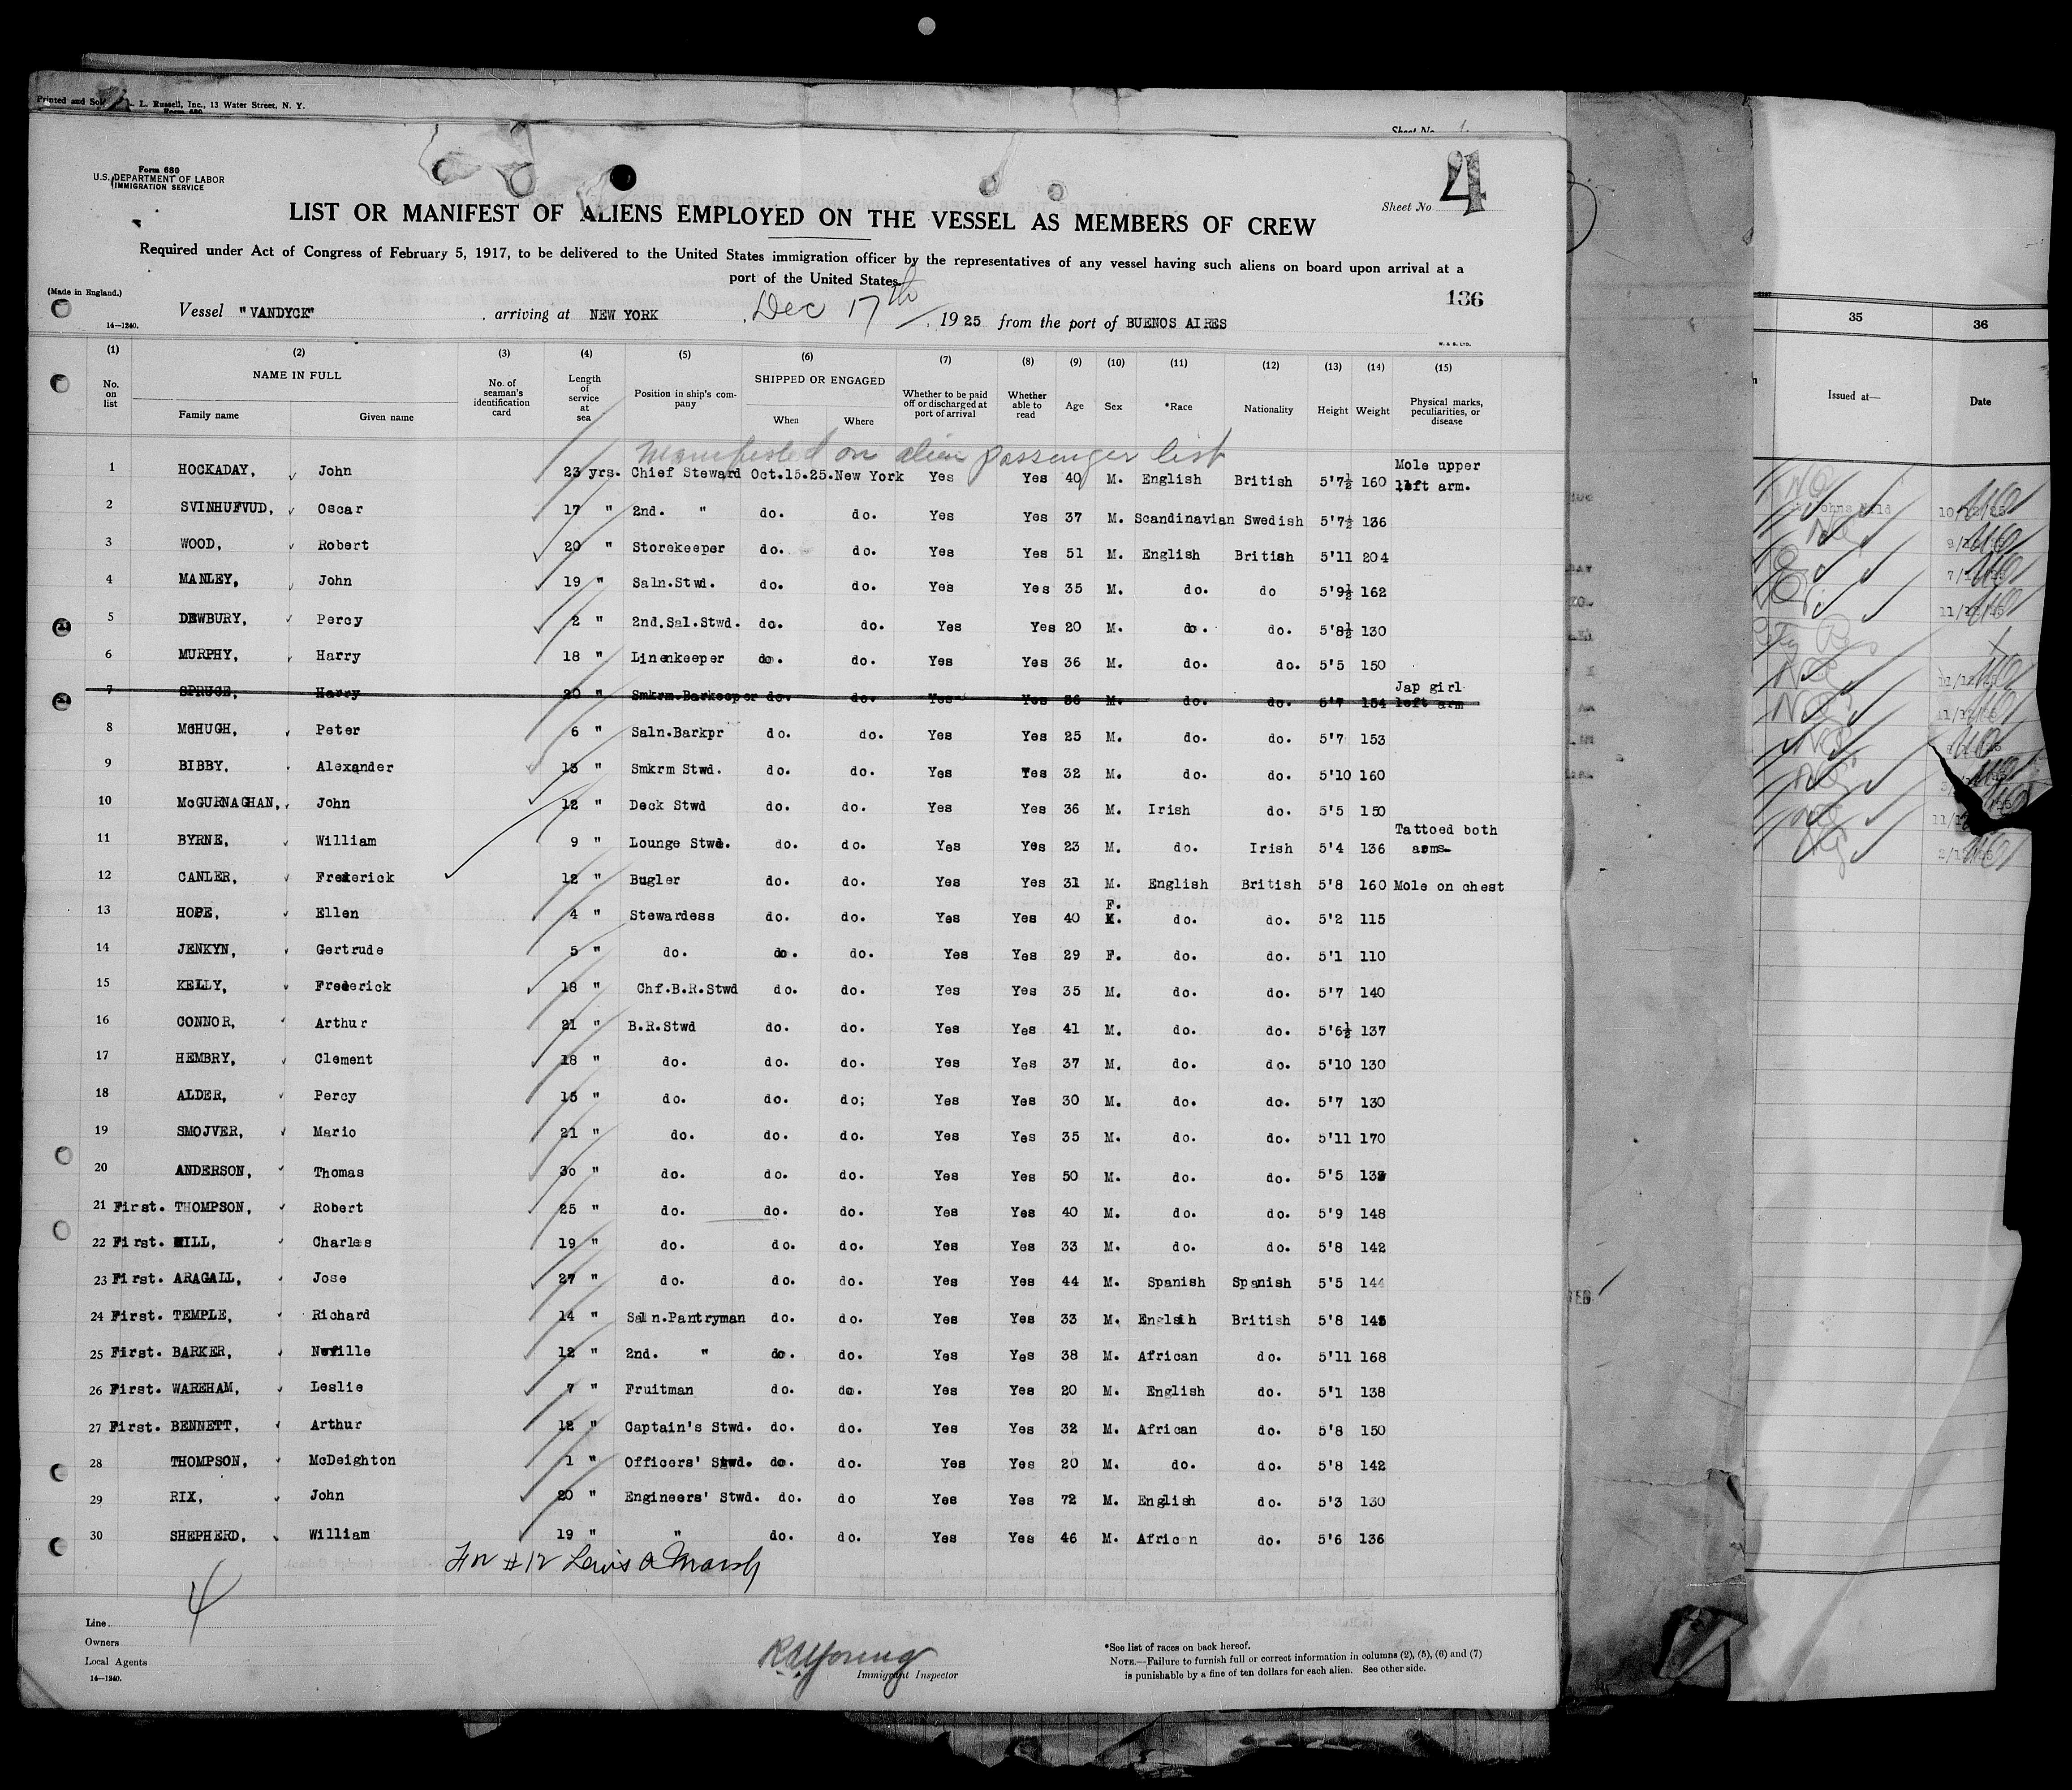 Printed and Sold L. Russell, Inc., 13 Water Street, N. Y.
Form 680
Sheet No
Form 680
U.S. DEPARTMENT OF LABOR
IMMIGRATION SERVICE
4
Sheet No
LIST OR MANIFEST OF ALIENS EMPLOYED ON THE VESSEL AS MEMBERS OF CREW
Required under Act of Congress of February 5, 1917, to be delivered to the United States immigration officer by the representatives of any vessel having such aliens on board upon arrival at a
port of the United States
(Made in England.)
136
Vessel "VANDYCK" , arriving at NEW YORK , Dec 17th , 1925 from the port of BUENOS AIRES
14—1240.
W. & S. LTD.
(1) (2) (3) (4) (5) (6) (7) (8) (9) (10) (11) (12) (13) (14) (15)
No. on list NAME IN FULL Family name Given name No. of seaman's identification card Length of service at sea Position in ship's company SHIPPED OR ENGAGED When Where Whether to be paid off or discharged at port of arrival Whether able to read Age Sex *Race Nationality Height Weight Physical marks, peculiarities, or disease
35 36
Issued at— Date
Manifested on alien passenger list
1 HOCKADAY, John 23 yrs. Chief Steward Oct.15.25. New York Yes Yes 40 M. English British 5'7½ 160 Mole upper left arm.
2 SVINHUFVUD, Oscar 17 " 2nd. " do. do. Yes Yes 37 M. Scandinavian Swedish 5'7½ 136
3 WOOD, Robert 20 " Storekeeper do. do. Yes Yes 51 M. English British 5'11 204
4 MANLEY, John 19 " Saln.Stwd. do. do. Yes Yes 35 M. do. do 5'9½ 162
5 DEWBURY, Percy 2 " 2nd.Sal.Stwd. do. do. Yes Yes 20 M. do. do. 5'8½ 130
6 MURPHY, Harry 18 " Linenkeeper do. do. Yes Yes 36 M. do. do. 5'5 150
7 SPRUCE, Harry 20 " Smkrm.Barkeeper do. do. Yes Yes 36 M. do. do. 5'7 154 Jap girl left arm
8 McHUGH, Peter 6 " Saln.Barkpr do. do. Yes Yes 25 M. do. do. 5'7 153
9 BIBBY, Alexander 15 " Smkrm Stwd. do. do. Yes Yes 32 M. do. do. 5'10 160
10 McGURNAGHAN, John 12 " Deck Stwd do. do. Yes Yes 36 M. Irish do. 5'5 150
11 BYRNE, William 9 " Lounge Stwd. do. do. Yes Yes 23 M. do. Irish 5'4 136 Tattoed both arms
12 CANLER, Frederick 12 " Bugler do. do. Yes Yes 31 M. English British 5'8 160 Mole on chest
13 HOPE, Ellen 4 " Stewardess do. do. Yes Yes 40 F. do. do. 5'2 115
14 JENKYN, Gertrude 5 " do. do. do. Yes Yes 29 F. do. do. 5'1 110
15 KELLY, Frederick 18 " Chf.B.R.Stwd do. do. Yes Yes 35 M. do. do. 5'7 140
16 CONNOR, Arthur 21 " B.R.Stwd do. do. Yes Yes 41 M. do. do. 5'6½ 137
17 HEMBRY, Clement 18 " do. do. do. Yes Yes 37 M. do. do. 5'10 130
18 ALDER, Percy 15 " do. do. do; Yes Yes 30 M. do. do. 5'7 130
19 SMOJVER, Mario 21 " do. do. do. Yes Yes 35 M. do. do. 5'11 170
20 ANDERSON, Thomas 30 " do. do. do. Yes Yes 50 M. do. do. 5'5
21 First. THOMPSON, Robert 25 " do. do. do. Yes Yes 40 M. do. do. 5'9 148
22 First. HILL, Charles 19 " do. do. do. Yes Yes 33 M. do. do. 5'8 142
23 First. ARAGALL, Jose 27 " do. do. do. Yes Yes 44 M. Spanish Spanish 5'5 144
24 First. TEMPLE, Richard 14 " Saln.Pantryman do. do. Yes Yes 33 M. Englsih British 5'8
25 First. BARKER, Neville 12 " 2nd. " do. do. Yes Yes 38 M. African do. 5'11 168
26 First. WAREHAM, Leslie 7 " Fruitman do. do. Yes Yes 20 M. English do. 5'1 138
27 First. BENNETT, Arthur 12 " Captain's Stwd. do. do. Yes Yes 32 M. African do. 5'8 150
28 THOMPSON, McDeighton 1 " Officers' Stwd. do. do. Yes Yes 20 M. do. do. 5'8 142
29 RIX, John 20 " Engineers' Stwd. do. do Yes Yes 72 M. English do. 5'3 130
30 SHEPHERD, William 19 " " do. do. Yes Yes 46 M. African do. 5'6 136
For #12 Lewis A Marsh
4
Line
Owners
Local Agents
14—1240.
RAYoung
Immigrant Inspector
*See list of races on back hereof.
NOTE.—Failure to furnish full or correct information in columns (2), (5), (6) and (7)
is punishable by a fine of ten dollars for each alien. See other side.